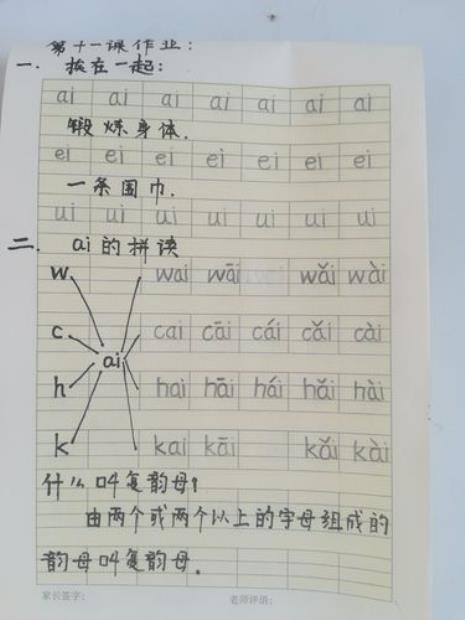 第十一课作业:
一. 挨在一起:
ai ai ai ai ai ai ai
锻炼身体.
ei ei ei ei ei ei ei
一条围巾.
ui ui ui ui ui ui ui
二. ai的拼读
w wai wāi wǎi wài
c cai cāi cái cǎi cài
ai
h hai hāi hái hǎi hài
k kai kāi kǎi kài
什么叫复韵母?
由两个或两个以上的字母组成的
韵母叫复韵母.
家长签字: 老师评语: